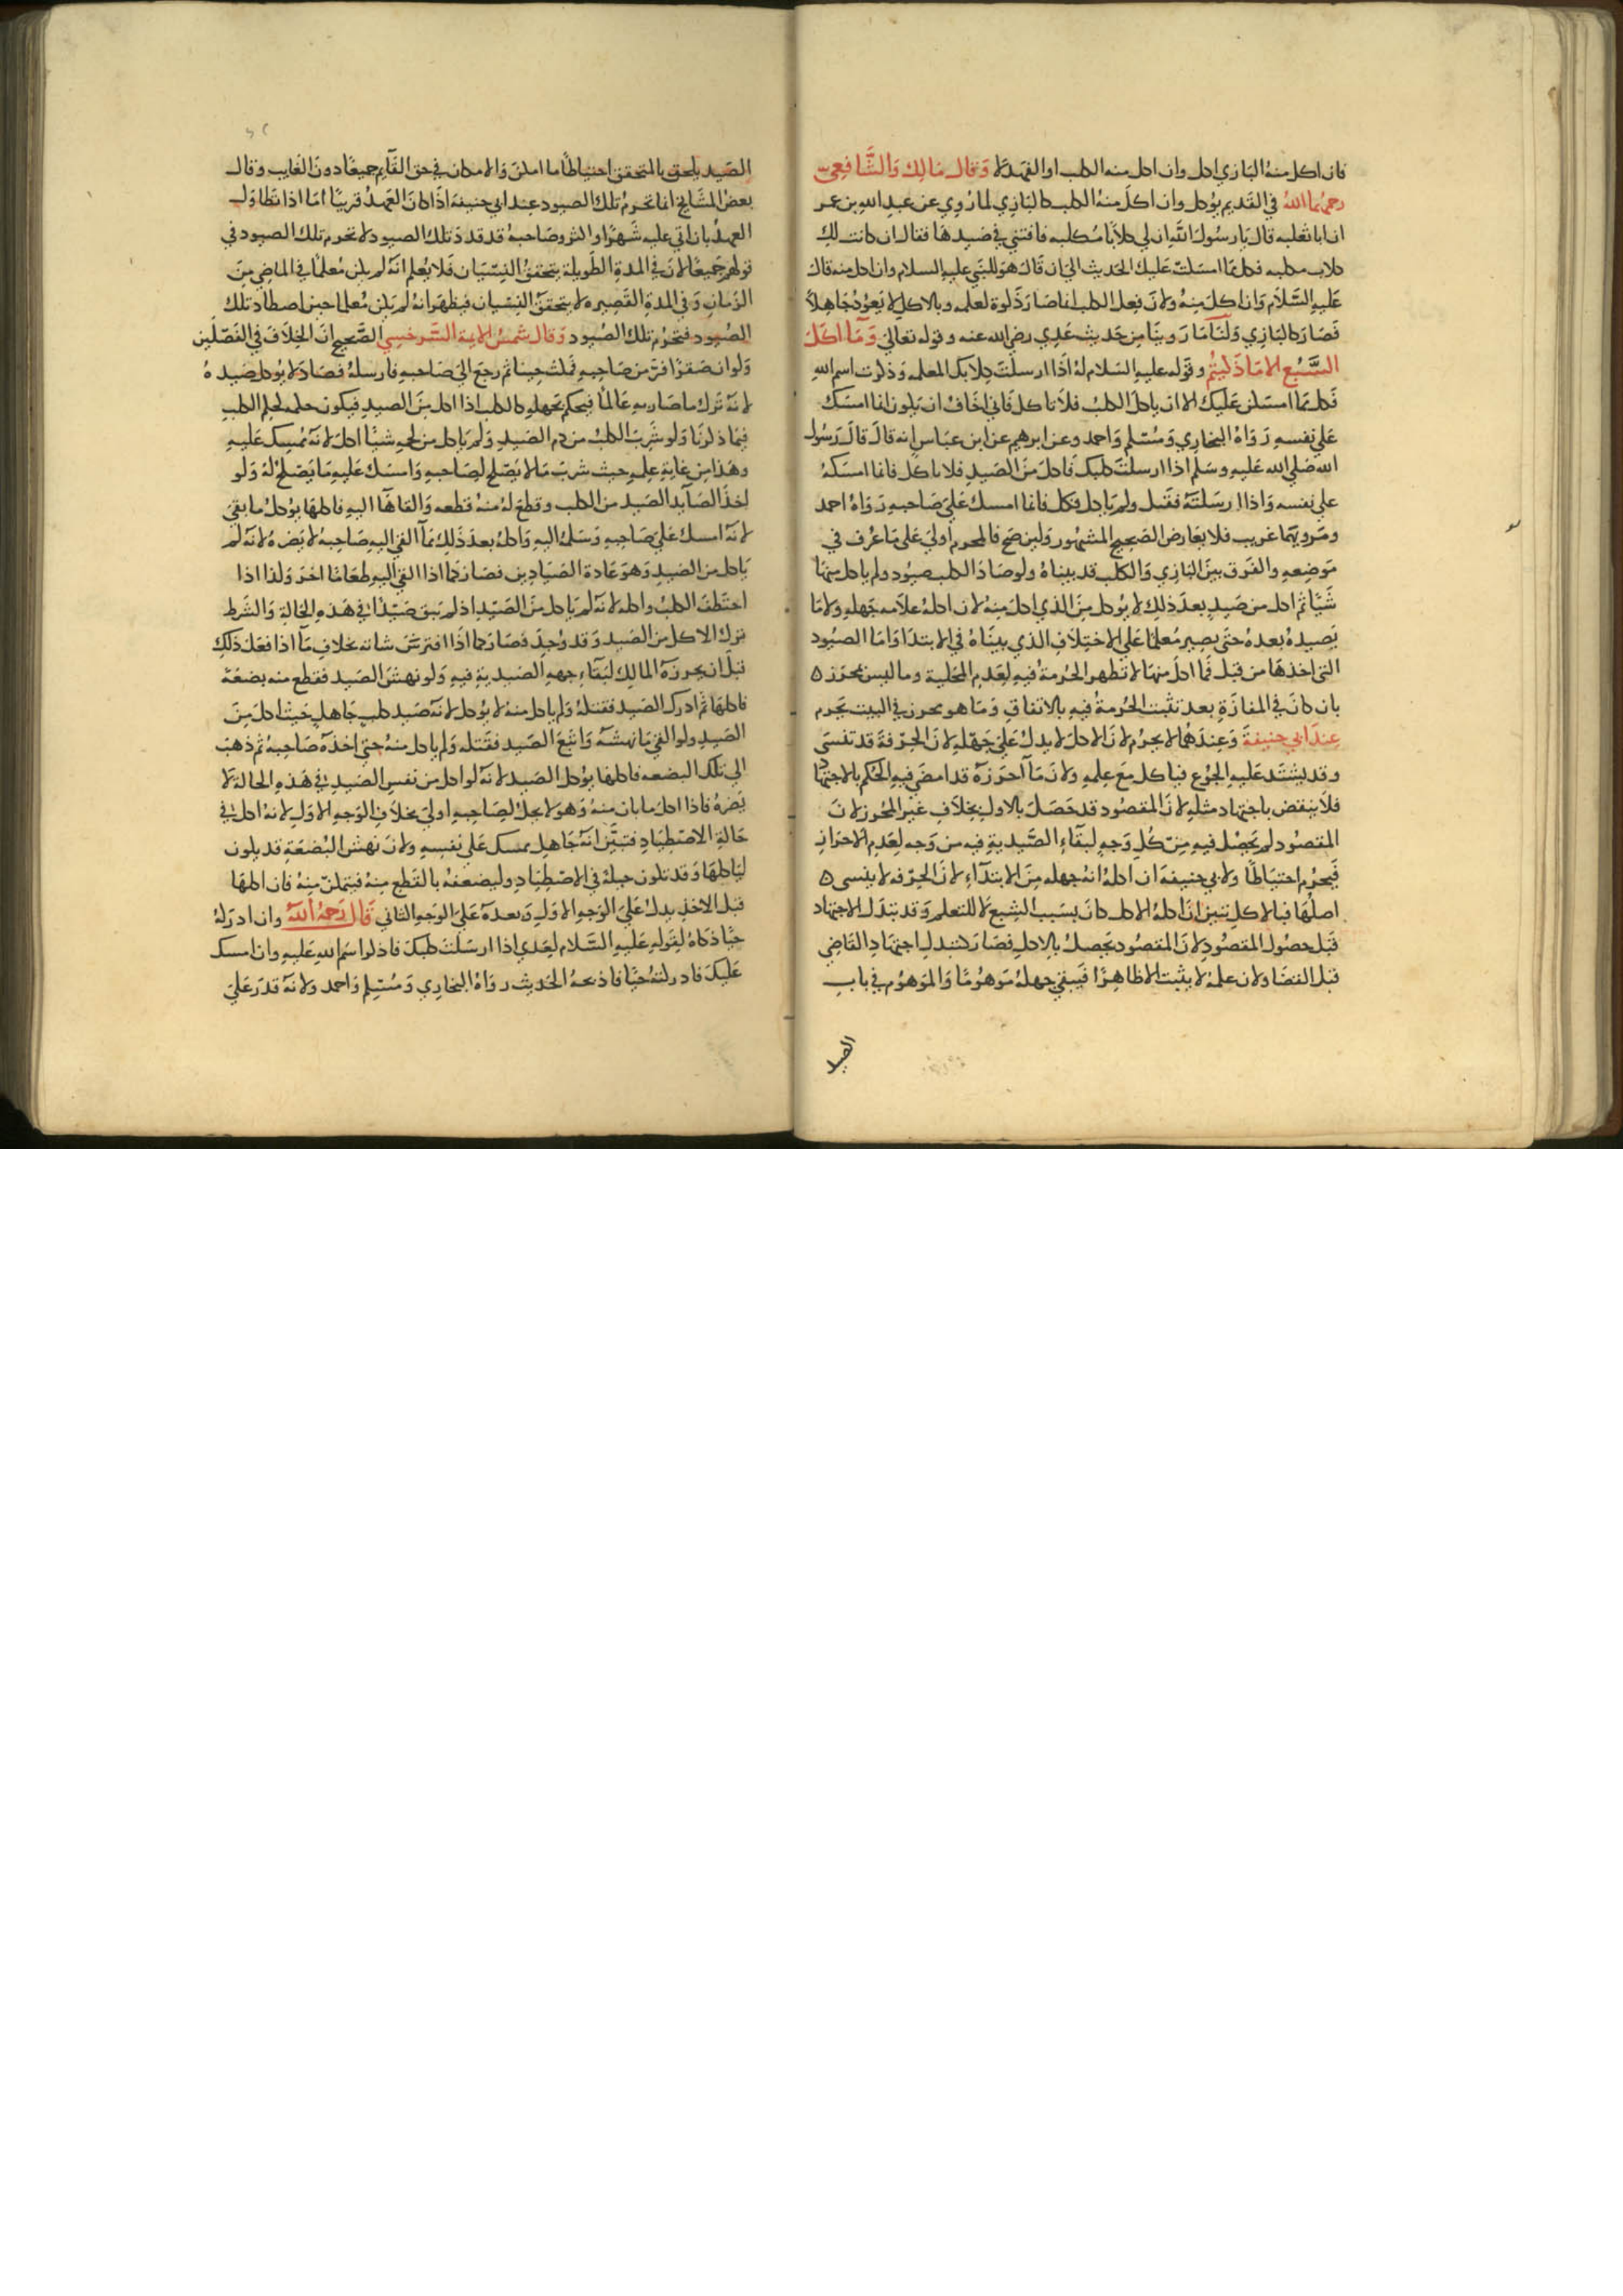 فان اكل منه البازي اكل وان اكل منه الكلب او الفهد لا وقال مالك والشافعي
رحمهما الله في القديم يؤكل وان اكل منه الكلب كالبازي لما روي عن عبد الله بن عمر
ان ابا ثعلبه قال يا رسول الله ان لي كلابا مكلبه فافتني في صيدها فقال ان كانت لك
كلاب مكلبه فكل مما امسكت عليك الحديث الى ان قال هو للنبي عليه السلام وان اكل منه قال
عليه السلام وان اكل منه ولان فعل الكلب انما صار ذكوة لعلمه وبالاكل لا يعود جاهلا
فصار كالبازي ولنا ما روينا من حديث عدي رضي الله عنه وقوله تعالى وما اكل
السبع الا ما ذكيتم وقوله عليه السلام له اذا ارسلت كلابك المعلمه وذكرت اسم الله
فكل مما امسكن عليك الا ان ياكل الكلب فلا تاكل فاني اخاف ان يكون انما امسك
على نفسه رواه البخاري ومسلم واحمد وعن ابرهيم عن ابن عباس انه قال قال رسول
الله صلى الله عليه وسلم اذا ارسلت كلبك فاكل من الصيد فلا تاكل فانما امسكه
على نفسه واذا ارسلته فقتل ولم ياكل فكل فانما امسك على صاحبه رواه احمد
ومرويهما غريب فلا يعارض الصحيح المشهور ولين صح فالمحرم اولى على ما عرف في
موضعه والفرق بين البازي والكلب قد بيناه ولو صاد الكلب صيود ولم ياكل منها
شيا ثم اكل من صيد بعد ذلك لا يؤكل من الذي اكل منه لان اكله علامه جهله ولا ما
يصيده بعده حتى يصير معلما على الاختلاف الذي بيناه في الابتدا واما الصيود
التي اخذها من قبل فما اكل منها لا تظهر الحرمة فيه لعدم المحلية وما ليس بمحرز
بان كان في المفازة بعد تثبت الحرمة فيه بالاتفاق وما هو محرز في البيت يحرم
عند ابي حنيفة وعندهما لا يحرم لان الاكل لا يدل على جهله لان الحرفة قد تنسى
وقد يشتد عليه الجوع فياكل مع علمه ولان ما احرزه قد امضى فيه الحكم بالاجتهاد
فلا ينقض باجتهاد مثله لان المقصود قد حصل بالاول بخلاف غير المحرز لان
المقصود لم يحصل فيه من كل وجه لبقاء الصيدية فيه من وجه لعدم الاحراز
فيحرم احتياطا ولابي حنيفه ان اكله انه جهله من الابتداء لان الحرفه لا ينسى
اصلها فبالاكل تبين ان اكله الاكل كان بسبب الشبع لا للتعلم وقد تبدل الاجتهاد
قبل حصول المقصود لان المقصود يحصل بالاكل فصار كتبدل اجتهاد القاضي
قبل القضا ولان علمه لا يثبت الا ظاهرا فيبقى جهله موهوما والموهوم في باب
الصيد
الصيد يلحق بالمتحقق احتياطا ما امكن والامكان في حق القايم جميعا دون الغايب وقال
بعض المشايخ انما تحرم تلك الصيود عند ابي حنيفة اذا كان العهد قريبا اما اذا تطاول
العهد بان اتى عليه شهرا او اكثر وصاحبه قد قدد تلك الصيود لا تحرم تلك الصيود في
قولهم جميعا لان في المدة الطويلة يتحقق النسيان فلا يعلم انه لم يكن معلما في الماضي من
الزمان وفي المدة القصيره لا يتحقق النسيان فيظهر انه لم يكن معلما حين اصطاد تلك
الصيود فتحرم تلك الصيود وقال شمس الايمة السرخسي الصحيح ان الخلاف في الفصلين
ولو ان صقرا فر من صاحبه فمكث حينا ثم رجع الى صاحبه فارسله فصاد لا يؤكل صيده
لانه ترك ما صار به عالما فيحكم بجهله كالكلب اذا اكل من الصيد فيكون حكمه كحكم الكلب
فيما ذكرنا ولو شرب الكلب من دم الصيد ولم ياكل من لحمه شيا اكل لانه ممسك عليه
وهذا من غاية علمه حيث شرب ما لا يصلح لصاحبه وامسك عليه ما يصلح له ولو
اخذ الصايد الصيد من الكلب وقطع له منه قطعه والقاها اليه فاكلها يؤكل ما بقي
لانه امسك على صاحبه وسلمه اليه واكله بعد ذلك مما القى اليه صاحبه لا يضره لانه لم
ياكل من الصيد وهو عادة الصيادين فصار كما اذا القى اليه طعاما اخر وكذا اذا
اختطف الكلب واكله لانه لم ياكل من الصيد اذ لم يبق صيدا في هذه الحالة والشرط
ترك الاكل من الصيد وقد وجد فصار كما اذا افترس شاته بخلاف ما اذا فعل ذلك
قبل ان يحرزه المالك لبقاء جهه الصيدية فيه ولو نهش الصيد فقطع منه بضعة
فاكلها ثم ادرك الصيد فقتله ولم ياكل منه لا يؤكل لانه صيد كلب جاهل حيث اكل من
الصيد ولو القى ما نهشه واتبع الصيد فقتله ولم ياكل منه حتى اخذه صاحبه ثم ذهب
الى تلك البضعه فاكلها يؤكل الصيد لانه لو اكل من نفس الصيد في هذه الحالة لا
يضره فاذا اكل ما بان منه وهو لا يحل لصاحبه اولى بخلاف الوجه الاول لانه اكل في
حالة الاصطياد فتبين انه جاهل ممسك على نفسه ولان نهش البضعة قد يكون
لياكلها وقد تكون حيلة في الاصطياد وليضعفه بالقطع منه فيتمكن منه فان اكلها
قبل الاخذ يدل على الوجه الاول وبعده على الوجه الثاني قال رحمه الله وان ادركه
حيا ذكاه لقوله عليه السلام لعدي اذا ارسلت كلبك فاذكر اسم الله عليه وان امسك
عليك فادركته حيا فاذبحه الحديث رواه البخاري ومسلم واحمد ولانه قدر على